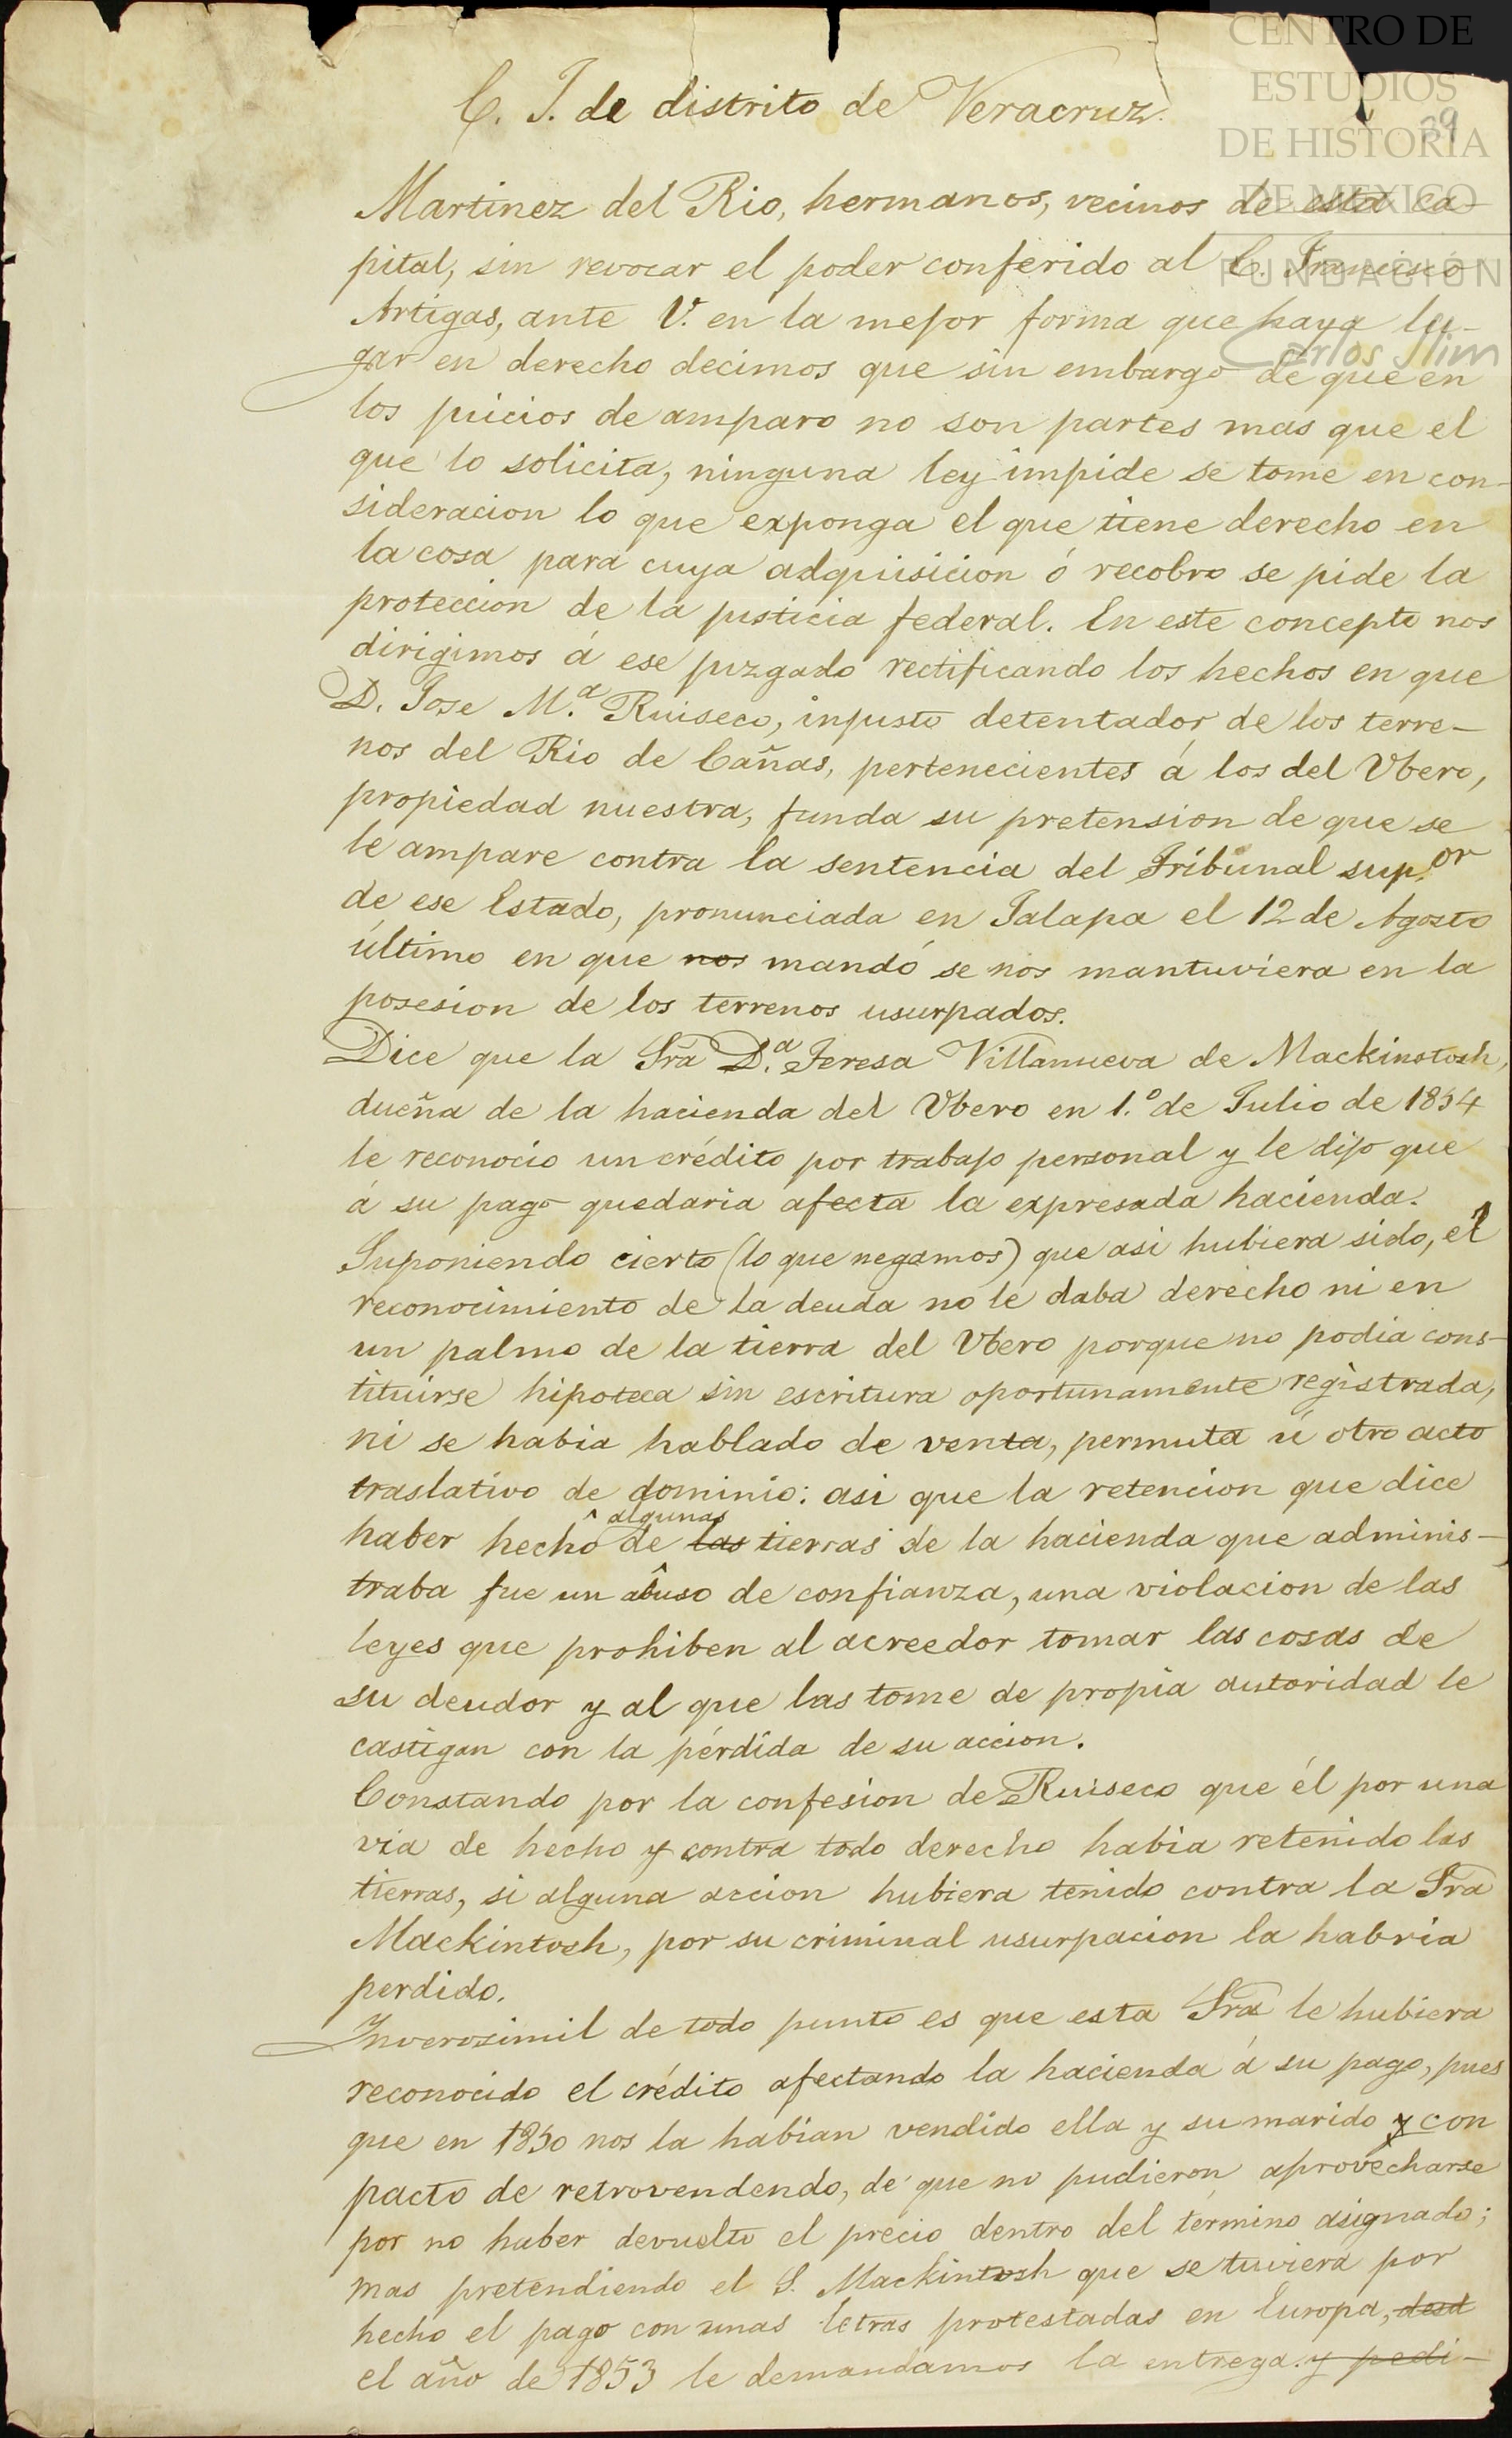 CENTRO DE
ESTUDIOS
DE HISTORIA
DE MEXICO
FUNDACIÓN
Carlos Slim
39
C. J. de distrito de Veracruz.
Martinez del Rio, hermanos, vecinos de esta ca-
pital, sin revocar el poder conferido al C. Francisco
Artigas, ante V. en la mejor forma que haya lu-
gar en derecho decimos que sin embargo de que en
los juicios de amparo no son partes mas que el
que lo solicita, ninguna ley impide se tome en con-
sideracion lo que exponga el que tiene derecho en
la cosa para cuya adquisicion ó recobro se pide la
proteccion de la justicia federal. En este concepto nos
dirigimos á ese juzgado rectificando los hechos en que
D. Jose M.ª Ruiseco, injusto detentador de los terre-
nos del Rio de Cañas, pertenecientes á los del Ubero,
propiedad nuestra, funda su pretension de que se
le ampare contra la sentencia del Tribunal sup.or
de ese Estado, pronunciada en Jalapa el 12 de Agosto
último en que nos mandó se nos mantuviera en la
posesion de los terrenos usurpados.
Dice que la Sra D.ª Teresa Villanueva de Mackinstosh,
dueña de la hacienda del Ubero en 1.º de Julio de 1854
le reconocio un crédito por trabajo personal y le dijo que
á su pago quedaria afecta la expresada hacienda.
Suponiendo cierto (lo que negamos) que asi hubiera sido, el
reconocimiento de la deuda no le daba derecho ni en
un palmo de la tierra del Ubero porque no podia cons-
tituirse hipoteca sin escritura oportunamente registrada,
ni se habia hablado de venta, permuta ú otro acto
traslativo de dominio: asi que la retencion que dice
haber hecho de algunas las tierras de la hacienda que adminis-
traba fue un abuso de confianza, una violacion de las
leyes que prohiben al acreedor tomar las cosas de
su deudor y al que las tome de propia autoridad le
castigan con la pérdida de su accion.
Constando por la confesion de Ruiseco que él por una
via de hecho y contra todo derecho habia retenido las
tierras, si alguna accion hubiera tenido contra la Sra
Mackintosh, por su criminal usurpacion la habria
perdido.
Inverosimil de todo punto es que esta Sra le hubiera
reconocido el crédito afectando la hacienda á su pago, pues
que en 1850 nos la habian vendido ella y su marido y con
pacto de retrovendendo, de que no pudieron aprovecharse
por no haber devuelto el precio dentro del término asignado;
mas pretendiendo el S. Mackintosh que se tuviera por
hecho el pago con unas letras protestadas en Europa, desd
el año de 1853 le demandamos la entrega y pedi-